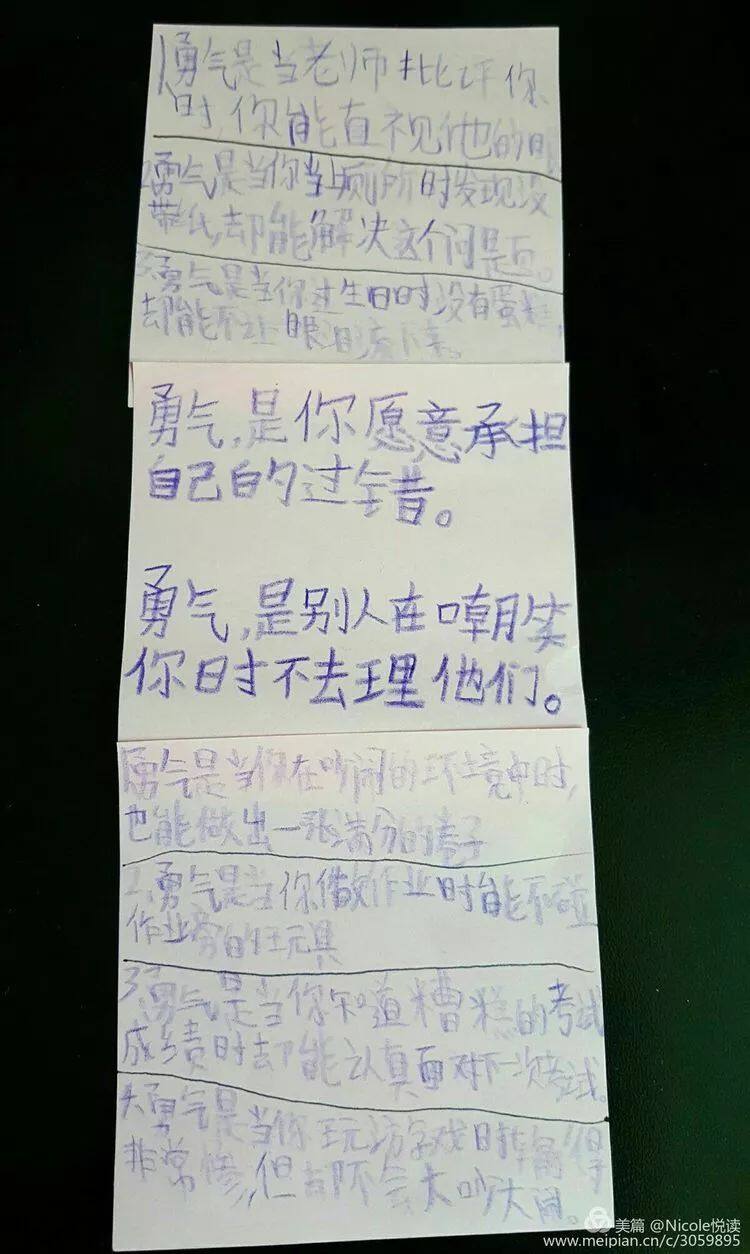 1勇气是当老师批评你
时,你能直视他的眼
2勇气是当你上厕所时发现没
带纸,却能解决这个问题。
3.勇气是当你过生日时没有蛋糕,
却能不让眼泪流下来。
勇气,是你愿意承担
自己的过错。
勇气,是别人在嘲笑
你时不去理他们。
1勇气是当你在吵闹的环境中时,
也能做出一张满分的卷子
2.勇气是当你做作业时能不碰
作业旁的玩具
3.勇气是当你知道糟糕的考试
成绩时却能认真面对下一次考试。
4.勇气是当你玩游戏时输得
非常惨,但却不会大吵大闹。
美篇 @Nicole悦读
www.meipian.cn/c/3059895